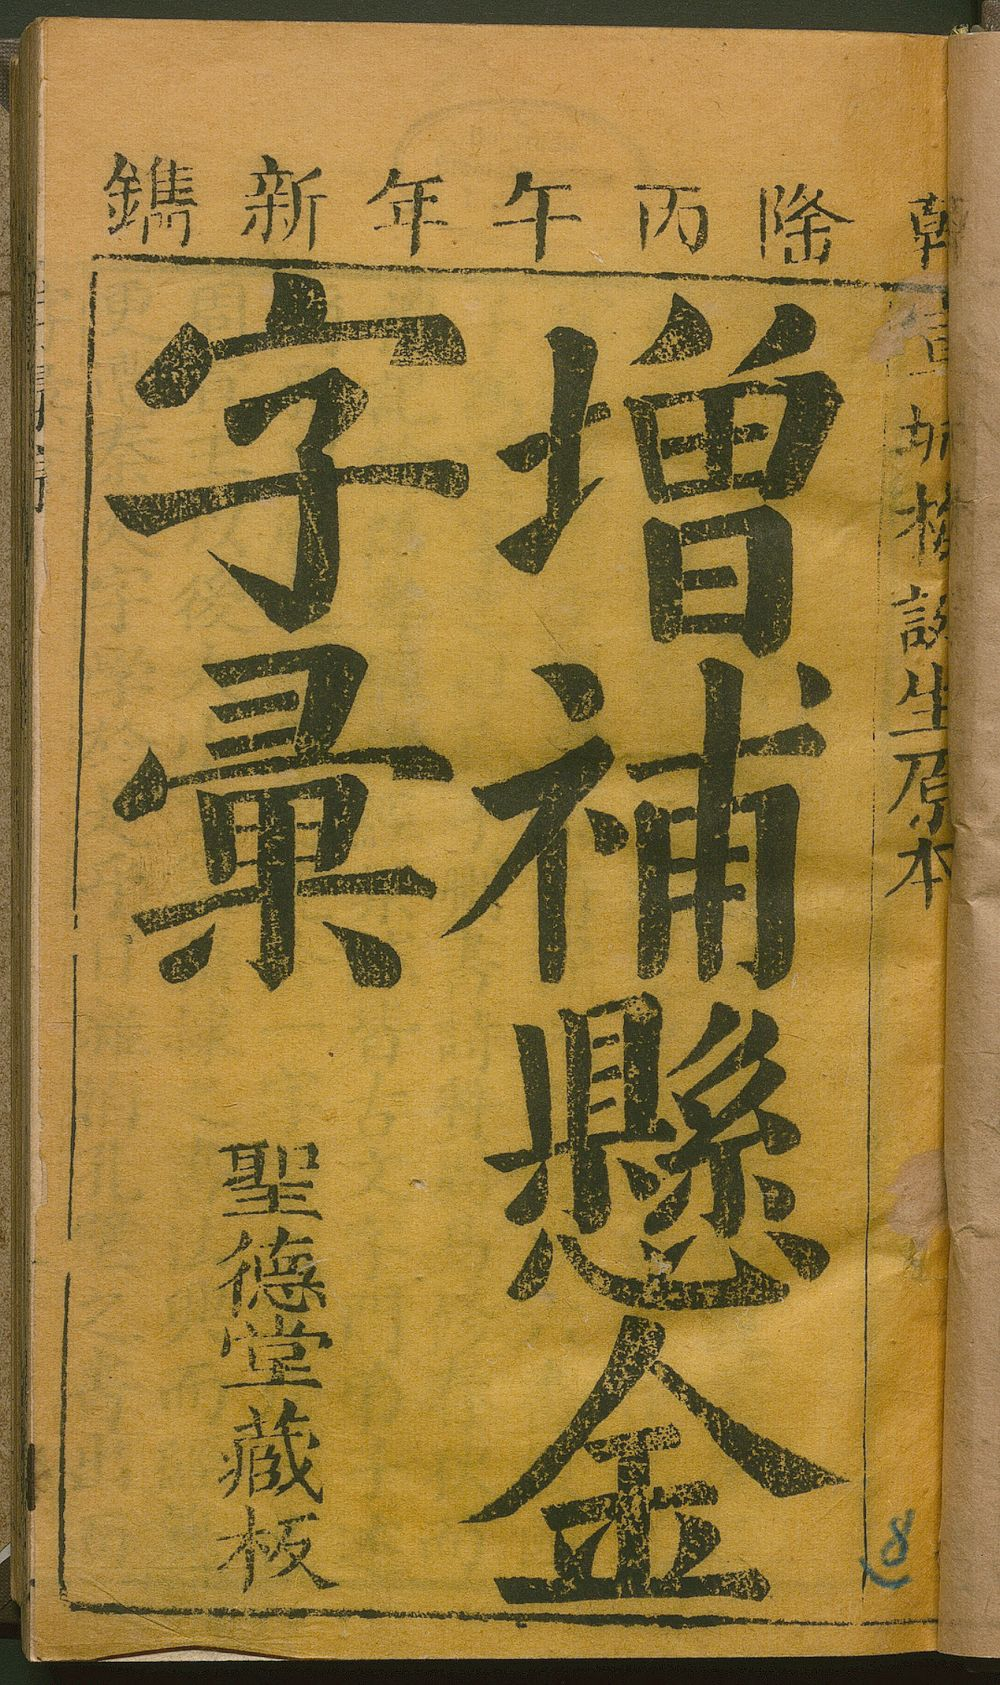 乾隆丙午年新鐫
宣城梅誕生原本
增補懸金
字彙
聖德堂藏板
8